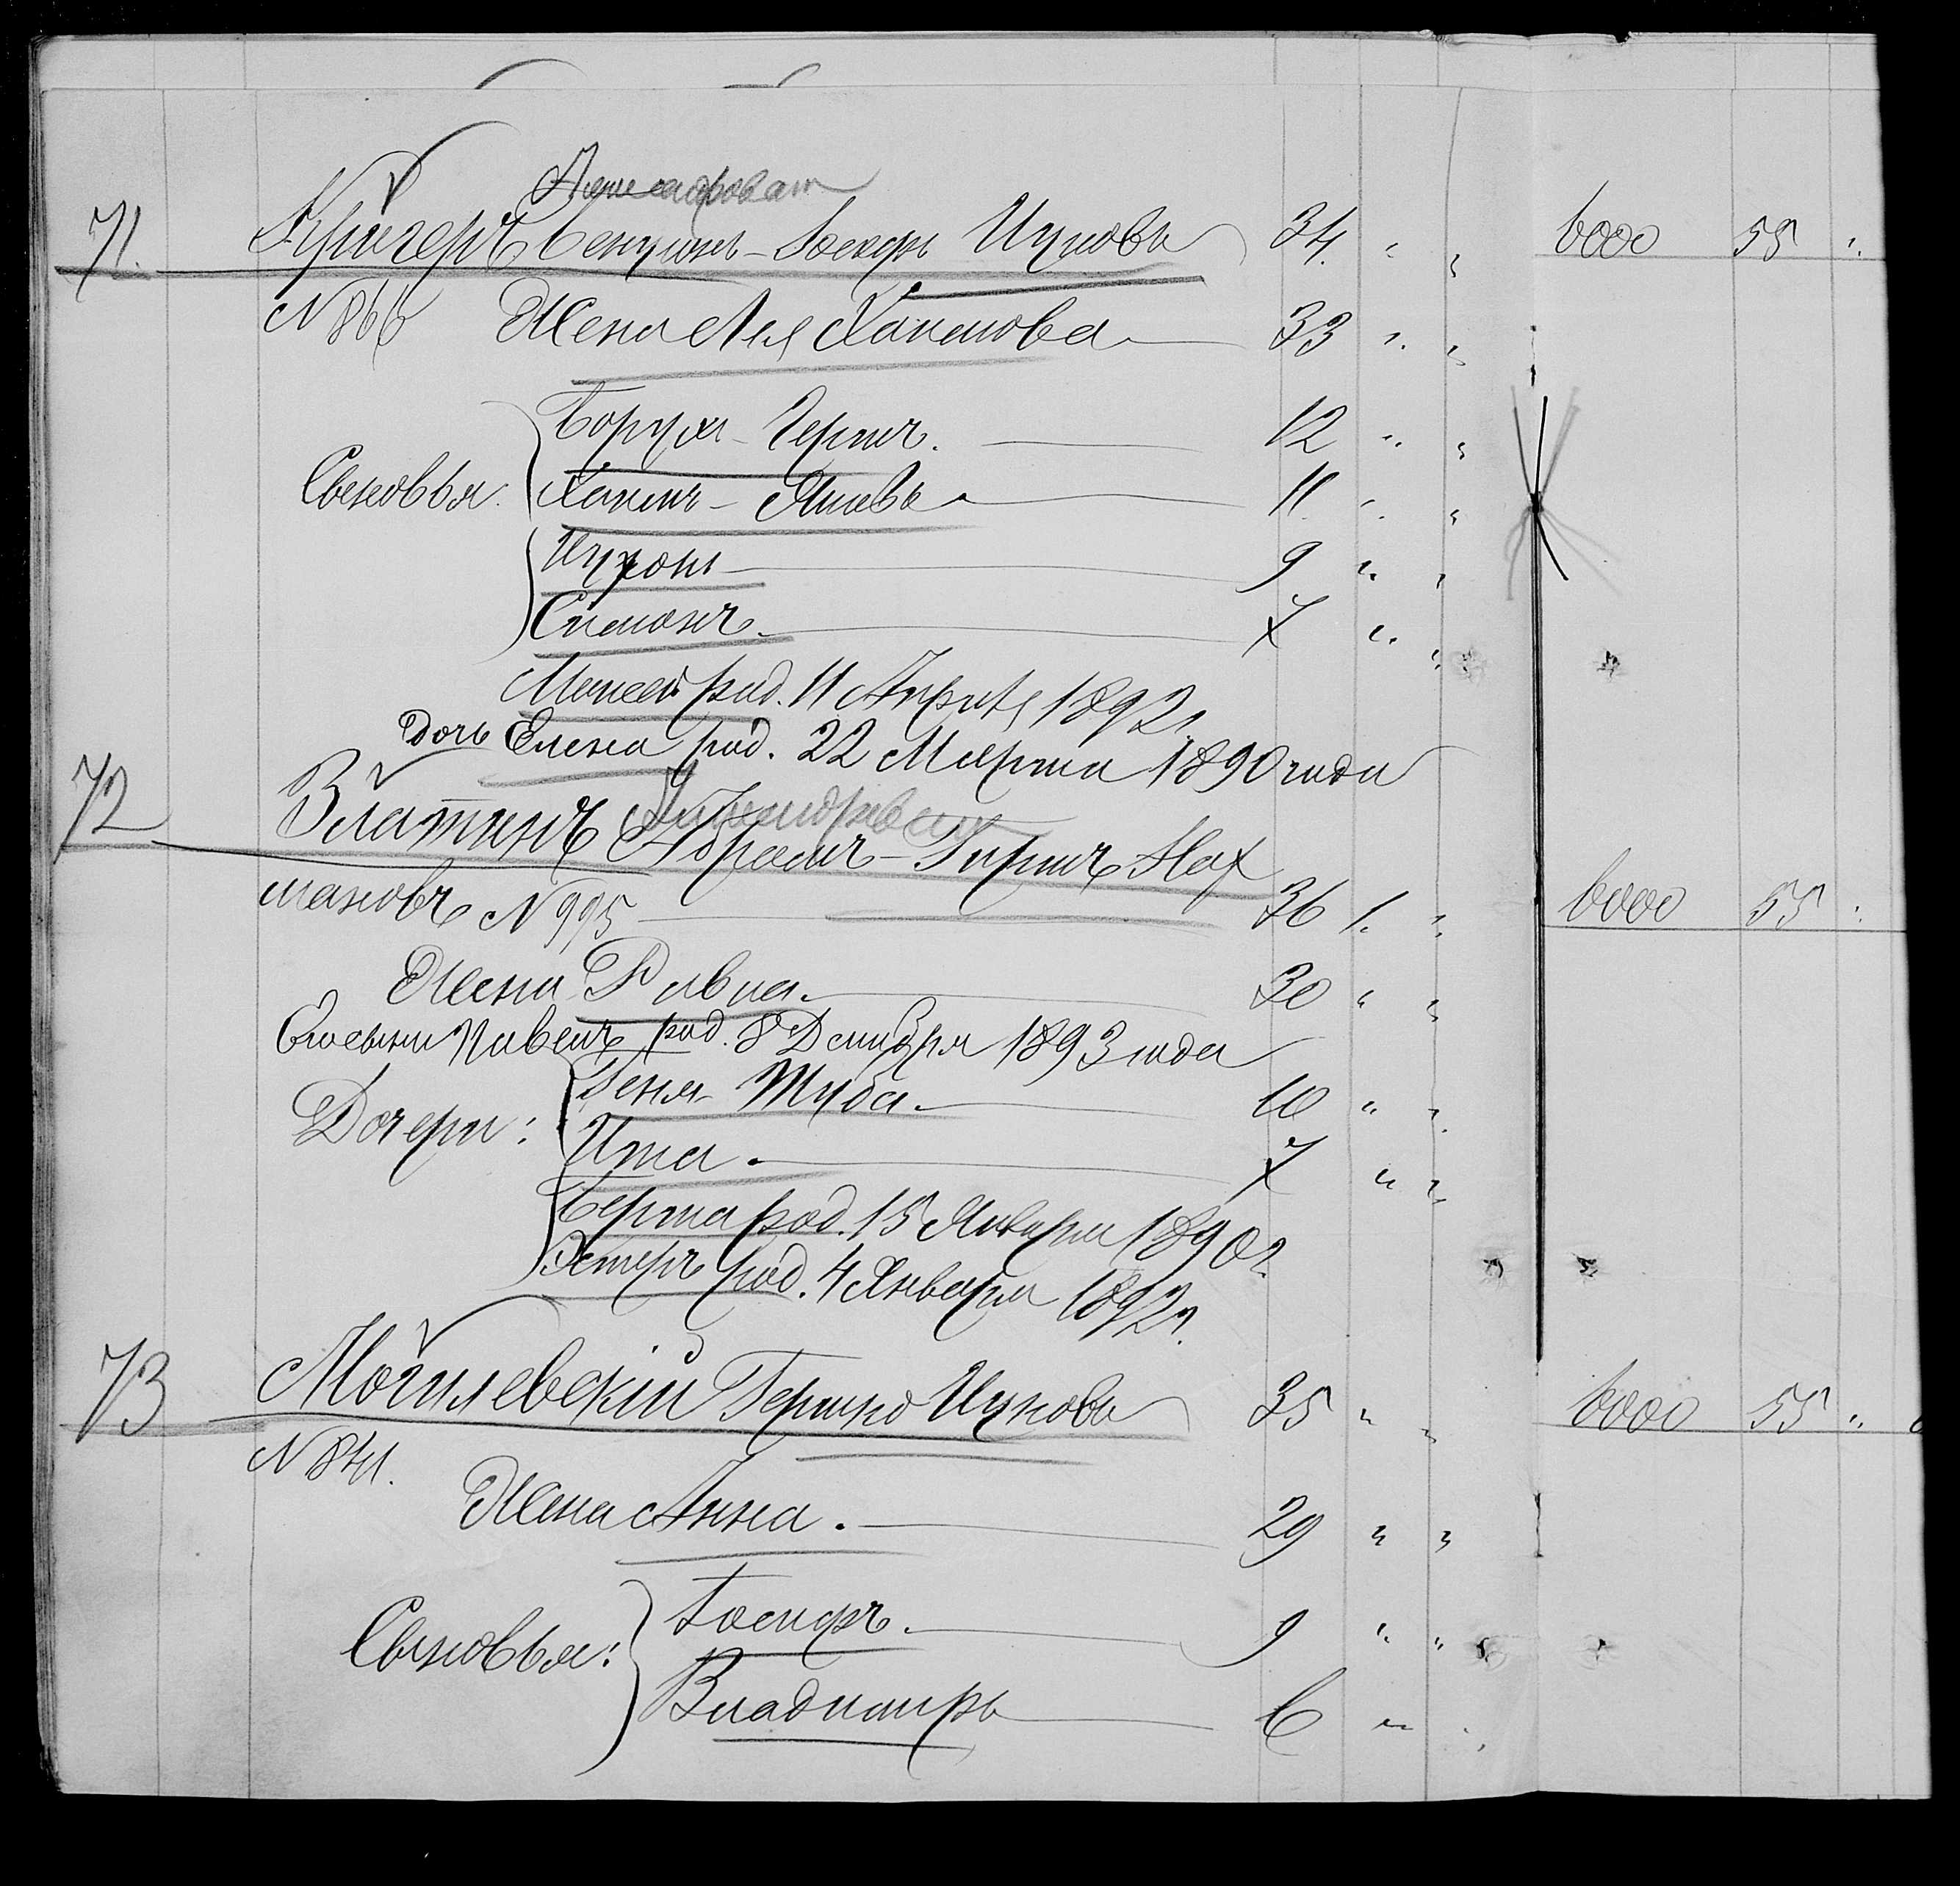 71. Кригеръ Бенцинъ-Іосифъ Ицковъ 34. " " 6000 55 "
N 866 Жена Лея Хаимова 33 " "
Сыновья:
Борухъ-Гершъ. 12 " "
Хаимъ-Янкевъ 11 " "
Ицхокъ 9 " "
Симонъ 7 " "
Моисей род. 11 Апрѣля 1892 г.
Дочь Елена род. 22 Марта 1890 года
72 Златкинъ Абрамъ-Гиршъ Нох
мановъ N 995 36 " " 6000 55 "
Жена Ривка 30 " "
Сынъ Павелъ род. 8 Декабря 1893 года
Дочери: Геня-Туба 10 " "
Ита 7 " "
Берта род. 15 Января 1890 г.
Эстеръ род. 4 Января 1892 г.
73 Могилевскій Гершко Ицковъ 35 " " 6000 55 "
N 841.
Жена Анна. 29 " "
Сыновья:
Іосифъ. 9 " "
Владимиръ 6 " "